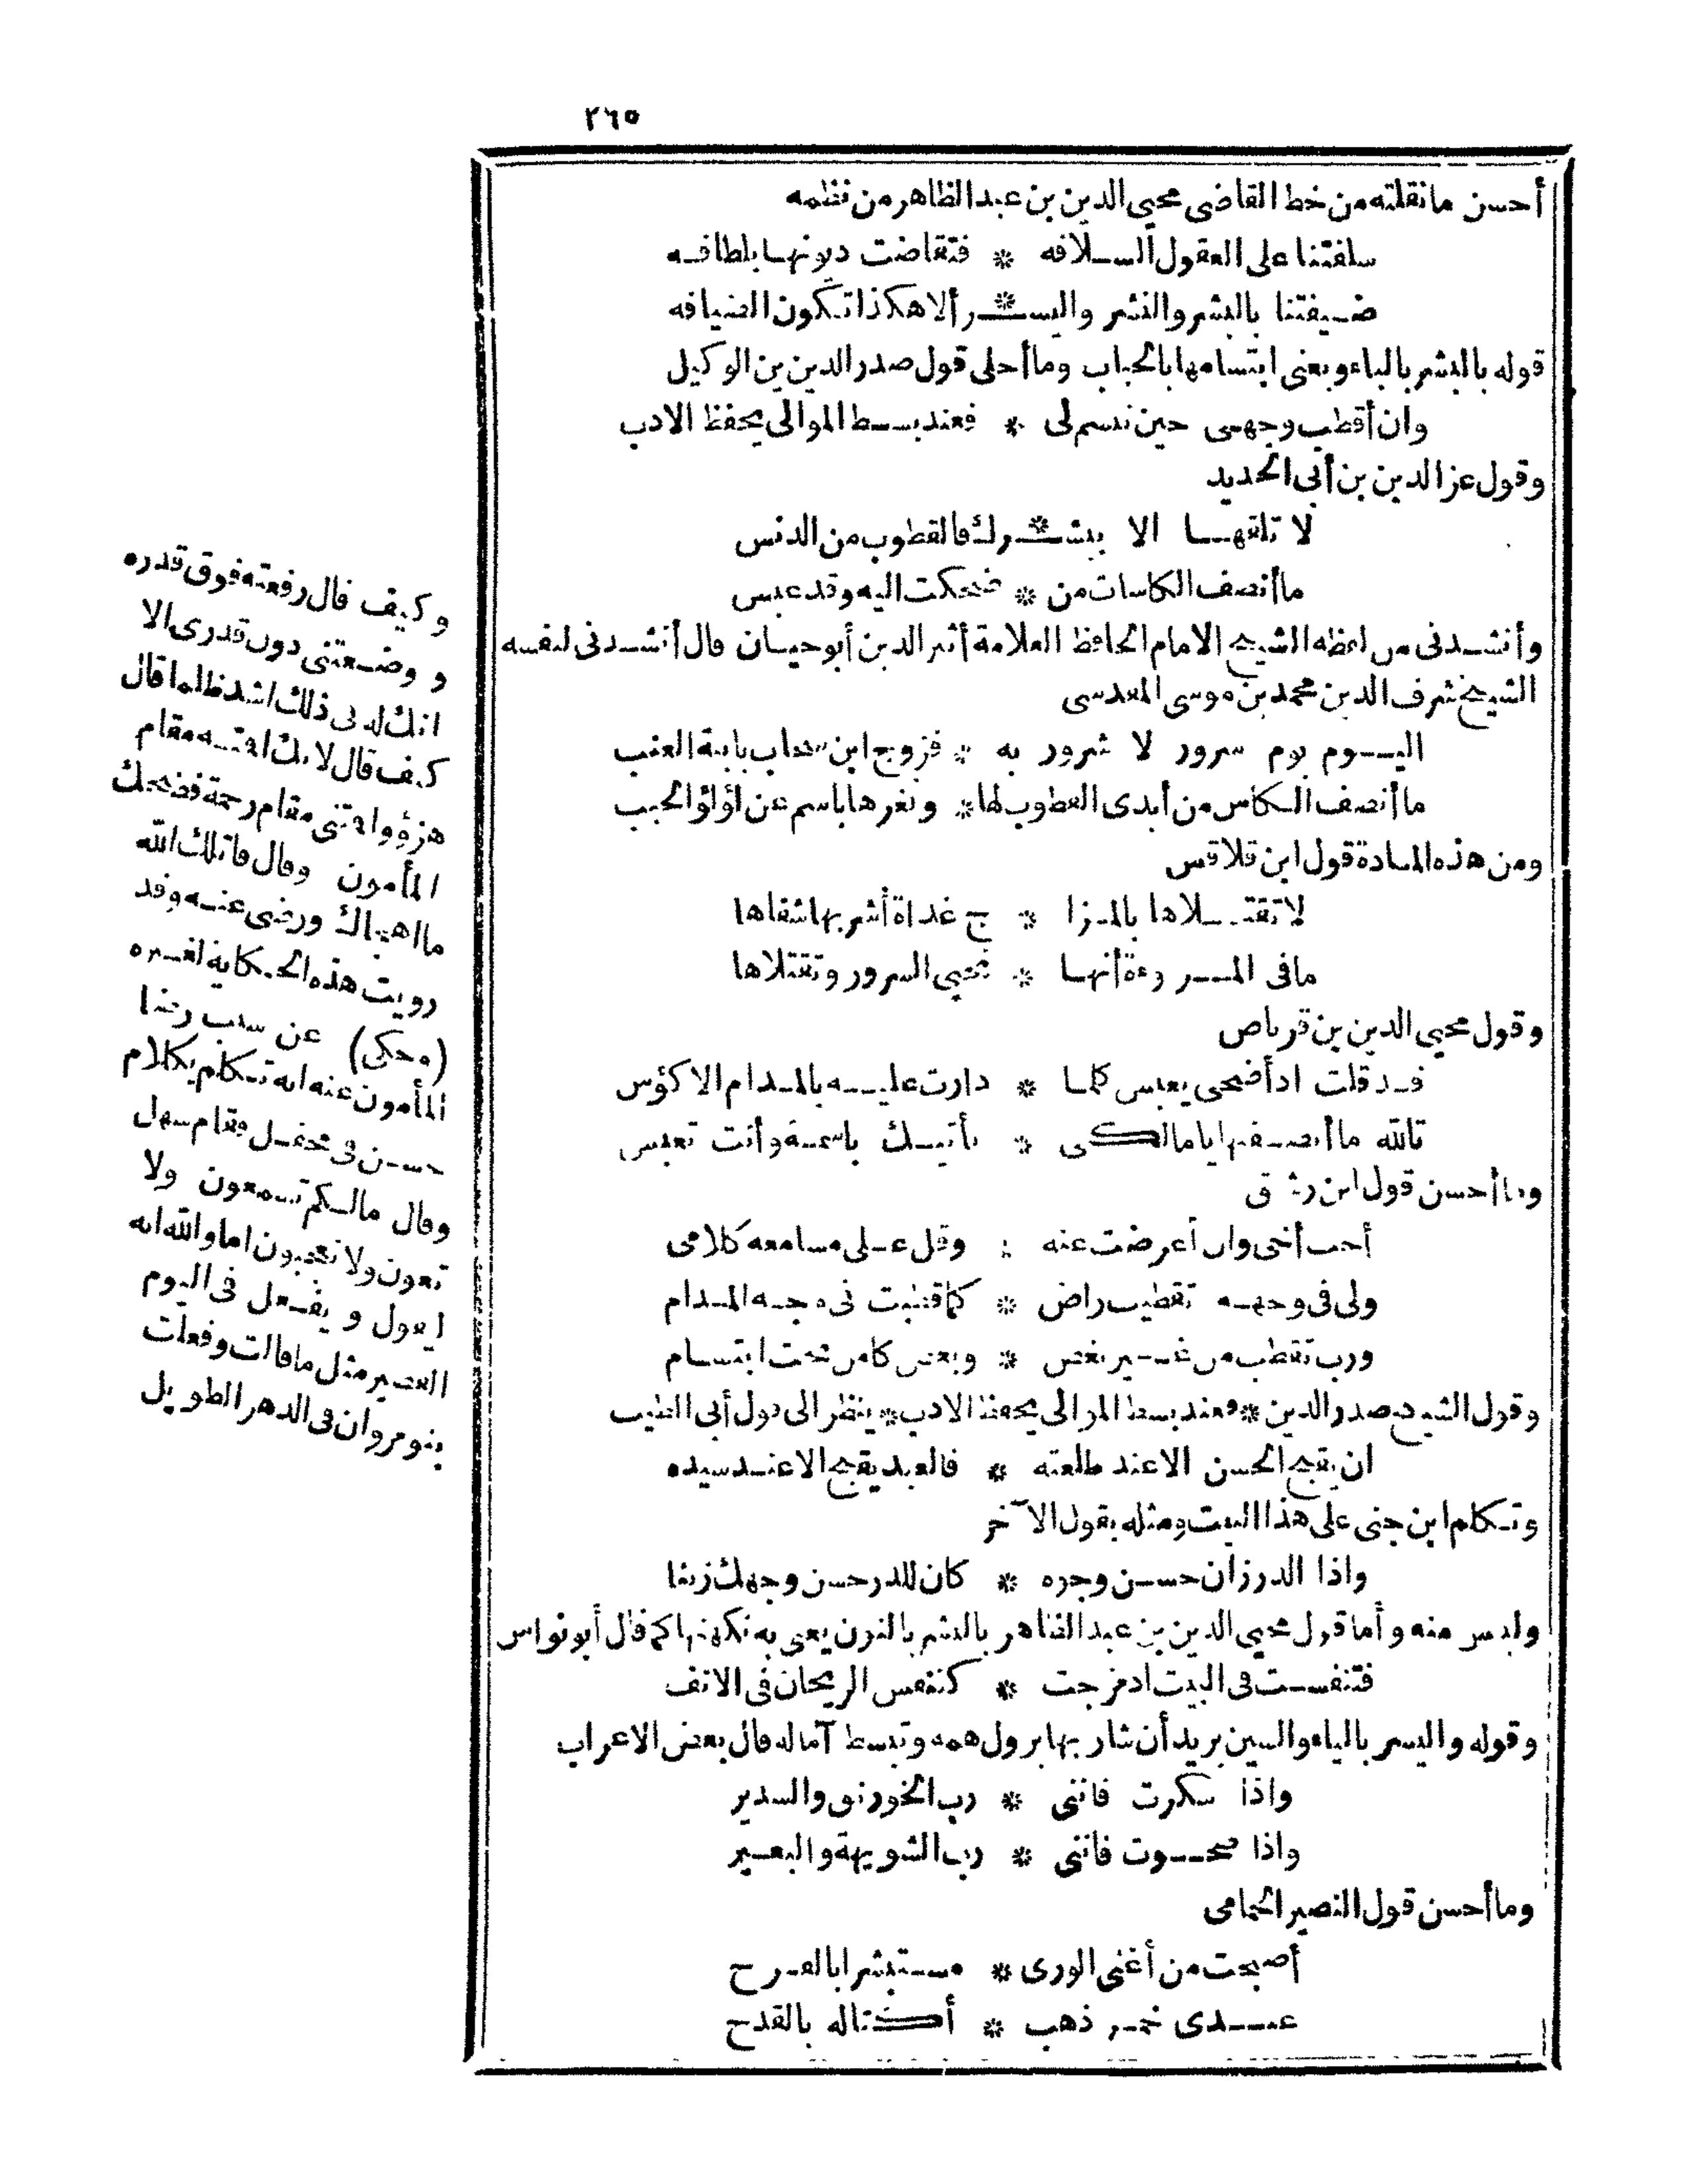 ٢٦٥
أحسن مانقلته من خط القاضى محيي الدين بن عبد الظاهر من نظمه
سلفتنا على العقول السلافه * فتقاضت ديونها بلطافه
ضيفتنا بالبشر والنشر واليسـ*ـر ألا هكذا تكون الضيافه
قوله بالبشر بالباء ويعنى ابتسامها بالحباب وما أحلى قول صدر الدين بن الوكيل
وان أقطب وجهى حين تبسم لى * فعند بسط الموالى يحفظ الادب
وقول عز الدين بن أبى الحديد
لا تلقها الا ببشـ*ـرك فالقطوب من الدنس
ما أنصف الكاسات من * ضحكت اليه وقد عبس
وأنشدنى من لفظه الشيخ الامام الحافظ العلامة أثير الدين أبو حيان قال أنشدنى لنفسه
الشيخ شرف الدين محمد بن موسى المقدسى
اليوم يوم سرور لا شرور به * فزوج ابن سحاب بابنة العنب
ما أنصف الكاس من أبدى القطوب لها * وثغرها باسم عن لؤلؤ الحبب
ومن هذه المادة قول ابن قلاقس
لا تقتلاها بالمزا * ج غداة أشر بها شفاها
مافى المروءة أنها * تحيي السرور وتقتلاها
وقول محيي الدين بن قرناص
قد قلت اذ أضحى يعبس كلما * دارت عليه بالمدام الاكؤس
تالله ما أنصفتها يا مالكى * تأتيك باسمة وأنت تعبس
وما أحسن قول ابن رشيق
أحب أخى وان أعرضت عنه * وقل على مسامعه كلامى
ولى فى وجهه تقطيب راض * كما قطبت فى وجه المدام
ورب تقطب من غير بغض * وبغض كامن تحت ابتسام
وقول الشيخ صدر الدين * فعند بسط الموالى يحفظ الادب * ينظر الى قول أبى الطيب
ان يقبح الحسن الا عند طلعته * فالعبد يقبح الا عند سيده
وتكلم ابن جنى على هذا البيت ومثله بقول الآخر
واذا الدر زان حسن وجوه * كان للدر حسن وجهك زينا
وليس منه وأما قول محيي الدين بن عبد الظاهر بالنشر بالنون يعنى به نكهتها كما قال أبو نواس
فتنفست فى البيت اذ مزجت * كتنفس الريحان فى الانف
وقوله واليسر بالياء والسين يريد أن شاربها يزول همه وتبسط آماله قال بعض الاعراب
واذا سكرت فاننى * رب الخورنق والسدير
واذا صحوت فاننى * رب الشويهة والبعير
وما أحسن قول النصير الحمامى
أصبحت من أغنى الورى * مستبشرا بالفرح
عندى خمر ذهب * أكتاله بالقدح
وكيف قال رفعته فوق قدره
و وضعتنى دون قدرى الا
انك له فى ذلك اشد ظلما قال
كيف قال لانك اقمته مقام
هزؤ واقمتنى مقام رحمة فضحك
المأمون وقال قاتلك الله
ما اهجاك ورضى عنه وقد
رويت هذه الحكاية لغيره
(وحكى) عن سبب رضا
المأمون عنه انه تكلم بكلام
حسن فى محفل فقام سهل
وقال مالكم تسمعون ولا
تعون ولا تعجبون اما والله انه
ليقول و يفعل فى اليوم
القصير مثل ما قالت وفعلت
بنو مروان فى الدهر الطويل